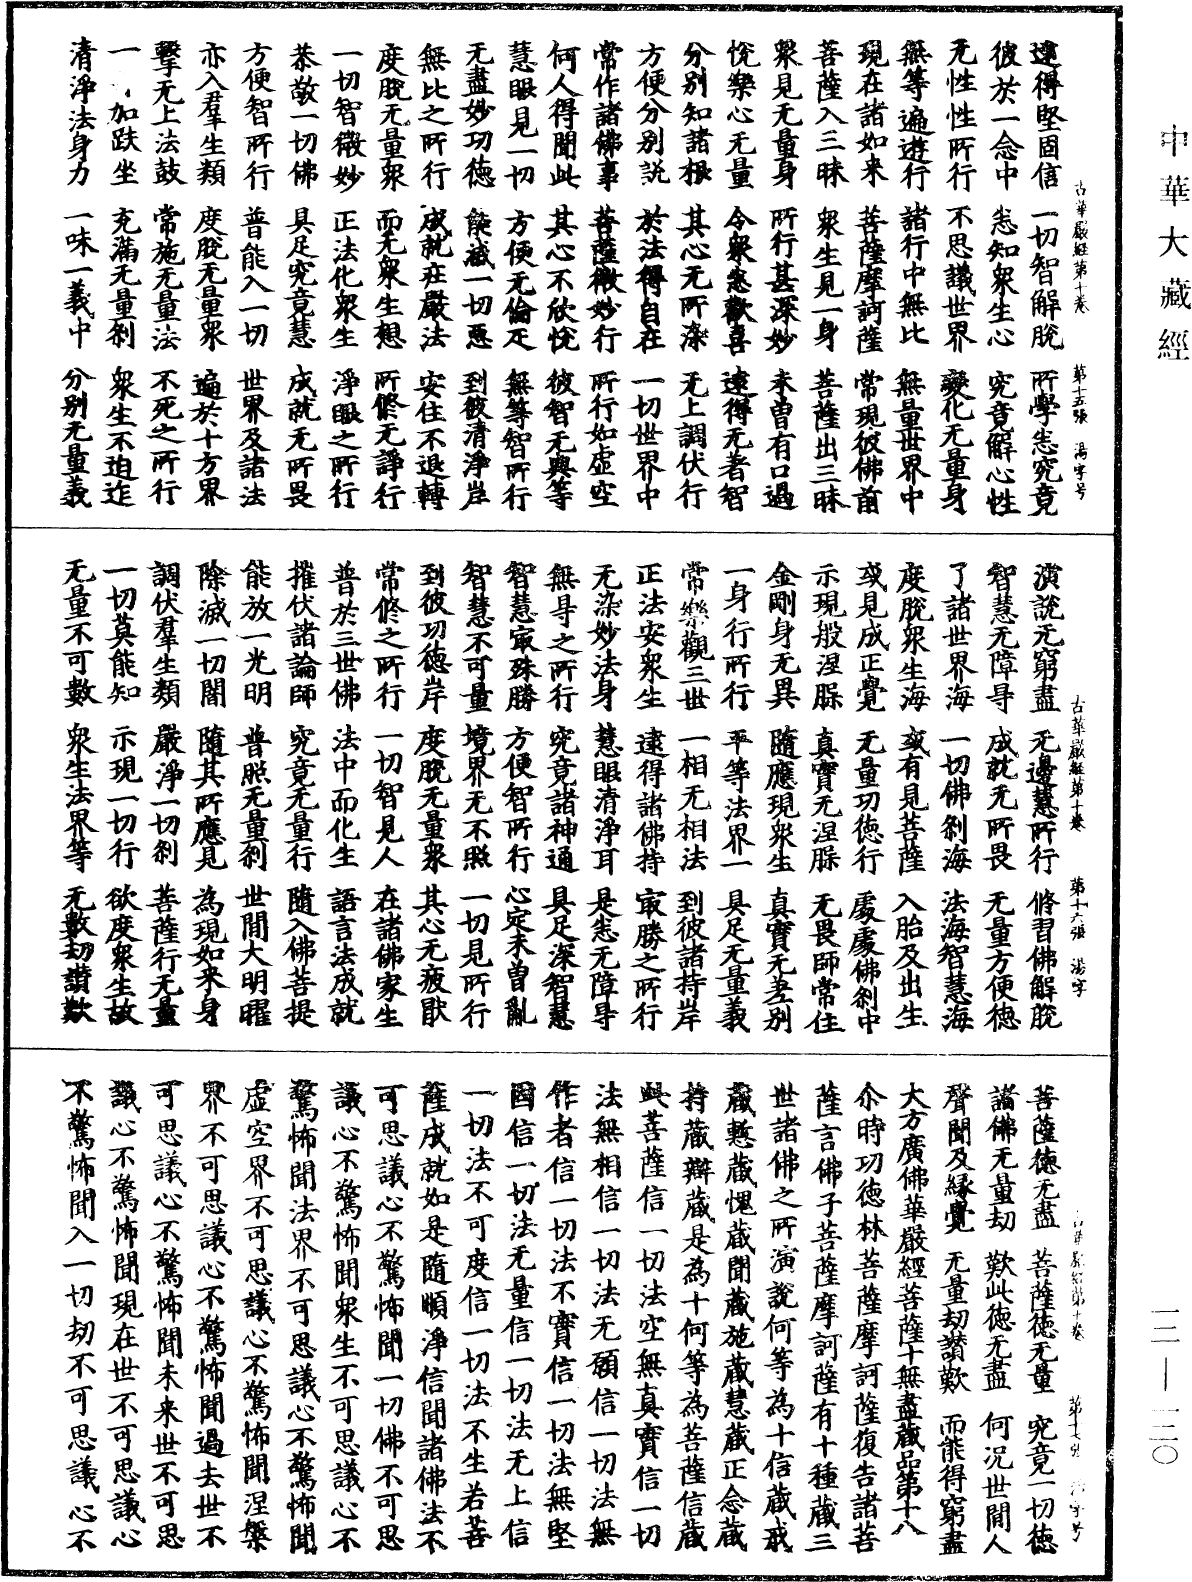 中華大藏經
速得堅固信　一切智解脫　所學悉究竟
彼於一念中　悉知衆生心　究竟解心性
无性性所行　不思議世界　變化无量身
無等遍遊行　諸行中無比　無量世界中
現在諸如来　菩薩摩訶薩　常現彼佛前
菩薩入三昧　衆生見一身　菩薩出三昧
衆見无量身　所行甚深妙　未曽有口過
悅樂心无量　令衆悉歡喜　逮得无著智
分别知諸根　其心无所染　无上調伏行
方便分别說　於法得自在　一切世界中
常作諸佛事　菩薩微妙行　所行如虛空
何人得聞此　其心不欣悅　彼智无與等
慧眼見一切　方便无倫疋　無等智所行
无盡妙功徳　能滅一切惡　到彼清淨岸
無比之所行　成就庄嚴法　安住不退轉
度脫无量衆　而无衆生想　所修无諍行
一切智微妙　正法化衆生　淨眼之所行
恭敬一切佛　具足究竟慧　成就无所畏
方便智所行　普能入一切　世界及諸法
亦入羣生類　度脫无量衆　遍於十方界
擊无上法鼓　常施无量法　不死之所行
一　加趺坐　充滿无量刹　衆生不迫迮
清淨法身力　一味一義中　分别无量義
古華嚴經第十卷　第十五張　湯字号
演說无窮盡　无邊慧所行　修習佛解脫
智慧无障㝵　成就无所畏　无量方便徳
了諸世界海　一切佛刹海　法海智慧海
度脫衆生海　或有見菩薩　入胎及出生
或見成正覺　无量功徳行　處處佛刹中
示現般涅脲　真實无涅脲　无畏師常住
金剛身无異　隨應現衆生　真實无差别
一身行所行　平等法界一　具足无量義
常樂觀三世　一相无相法　到彼諸持岸
正法安衆生　逮得諸佛持　㝡勝之所行
无染妙法身　慧眼清淨耳　是悉无障㝵
無㝵之所行　究竟諸神通　具足深智慧
智慧㝡殊勝　方便智所行　心定未曽亂
智慧不可量　境界无不照　一切見所行
到彼功徳岸　度脫无量衆　其心无疲猒
常修之所行　一切智見人　在諸佛家生
普於三世佛　法中而化生　語言法成就
摧伏諸論師　究竟无量行　隨入佛菩提
能放一光明　普照无量刹　世間大明曜
除滅一切闇　隨其所應見　為現如来身
調伏羣生類　嚴淨一切刹　菩薩行无量
一切莫能知　示現一切行　欲度衆生故
无量不可數　衆生法界等　无數劫讃歎
古華嚴經第十卷　第十六張　湯字
菩薩徳无盡　菩薩徳无量　究竟一切徳
諸佛无量劫　歎此徳无盡　何況世間人
聲聞及緣覺　无量劫讃歎　而能得窮盡
大方廣佛華嚴經菩薩十無盡藏品第十八
尒時功徳林菩薩摩訶薩復告諸菩
薩言佛子菩薩摩訶薩有十種藏三
世諸佛之所演說何等為十信藏戒
藏慙藏愧藏聞藏施藏慧藏正念藏
持藏辯藏是為十何等為菩薩信藏
此菩薩信一切法空無真實信一切
法無相信一切法无願信一切法無
作者信一切法不實信一切法無堅
固信一切法无量信一切法无上信
一切法不可度信一切法不生若菩
薩成就如是隨順淨信聞諸佛法不
可思議心不驚怖聞一切佛不可思
議心不驚怖聞衆生不可思議心不
驚怖聞法界不可思議心不驚怖聞
虛空界不可思議心不驚怖聞涅槃
界不可思議心不驚怖聞過去世不
可思議心不驚怖聞未来世不可思
議心不驚怖聞現在世不可思議心
不驚怖聞入一切劫不可思議心不
華嚴經第十卷　第十七張　字号
一二—一二〇